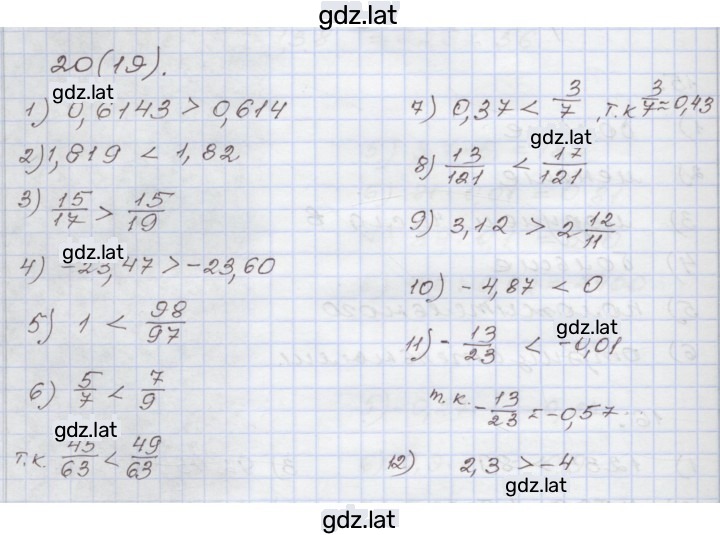 gdz.lat
20(19).
gdz.lat
1) 0,6143 > 0,614
2) 1,819 < 1,82
3) 15/17 > 15/19
gdz.lat
4) -23,47 > -23,60
5) 1 < 98/97
6) 5/7 < 7/9
gdz.lat
т.к. 45/63 < 49/63
7) 0,37 < 3/7, т.к 3/7 ≈ 0,43
gdz.lat
8) 13/121 < 17/121
9) 3,12 > 2 12/11
10) -4,87 < 0
gdz.lat
11) -13/23 < -0,01
т.к. -13/23 ≈ -0,57...
12) 2,3 > -4
gdz.lat
gdz.lat